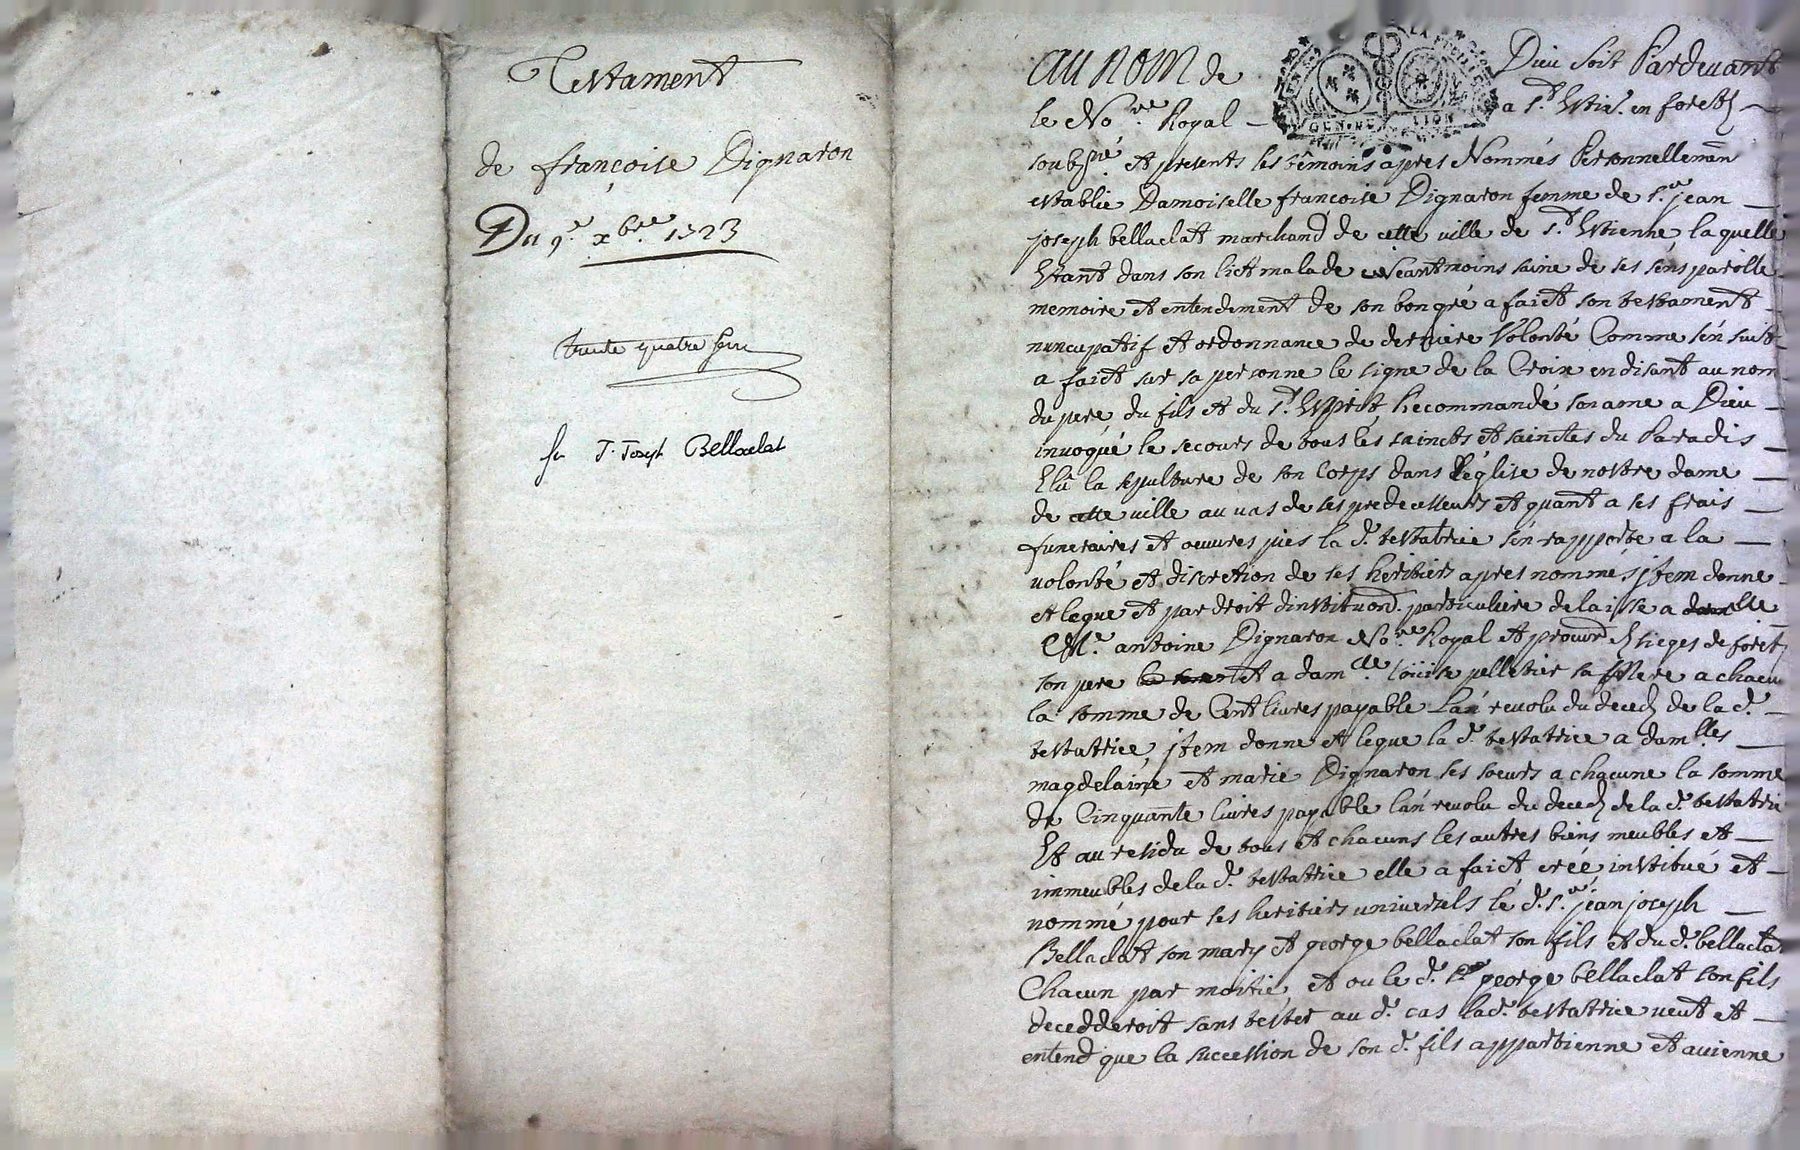 Testament
de françoise Dignaron
Du 9.e xbre. 1723
trente quatre
J. Joseph Bellaclat
au nom de Dieu soit Pardevant
le Nore. Royal a St. Estie. en forests
soubsné. et presents les têmoins apres Nommés Personnellemen
establie Damoiselle françoise Dignaron femme de sr. jean
joseph bellaclat marchand de cette ville de St. Estienne laquelle
Estant dans son lict malade neantmoins saine de ses sens parolle
memoire et entendement de son bon gré a faict son testament
nuncupatif et ordonnance de derniere Volonté Comme s'en suit
a faict sur sa personne le signe de la Croix en disant au nom
du pere du fils et du St. Esprit Recommandé son ame a Dieu
invoqué le secours de tous les saincts et sainctes du Paradis
Elû la sepulture de son Corps dans l'église de nostre dame
de cette ville au vas de ses predecesseurs et quant a ses frais
funeraires et oeuvres pies la d. testatrice s'en rapporte a la
volonté et discretion de ses heritiers apres nommés, jtem donne
et legue et par droit dinstituon. particuliere delaisse a
Me. antoine Dignaron Nore. Royal et procur. Es sieges de forests
son pere et a damlle. Loüise pelletier sa Mere a chacu
la somme de Cent livres payable L'an revolu du deceds de la d.
testatrice, jtem donne et legue la d. testatrice a damlles
magdelaine et marie Dignaron ses soeurs a chacune la somme
de Cinquante livres payable l'an revolu du deceds de la d. testatrice
Et au residu de tous et chacuns les autres biens meubles et
immeubles de la d. testatrice elle a faict creé institué et
nommé pour ses heritiers universels le d. sr. jean joseph
Bellaclat son mary et george bellaclat son fils et du d. bellaclat
Chacun par moitié, et ou le d. george bellaclat son fils
decedderoit sans tester au d. cas la d. testatrice veut et
entend que la succession de son d. fils appartienne et avienne